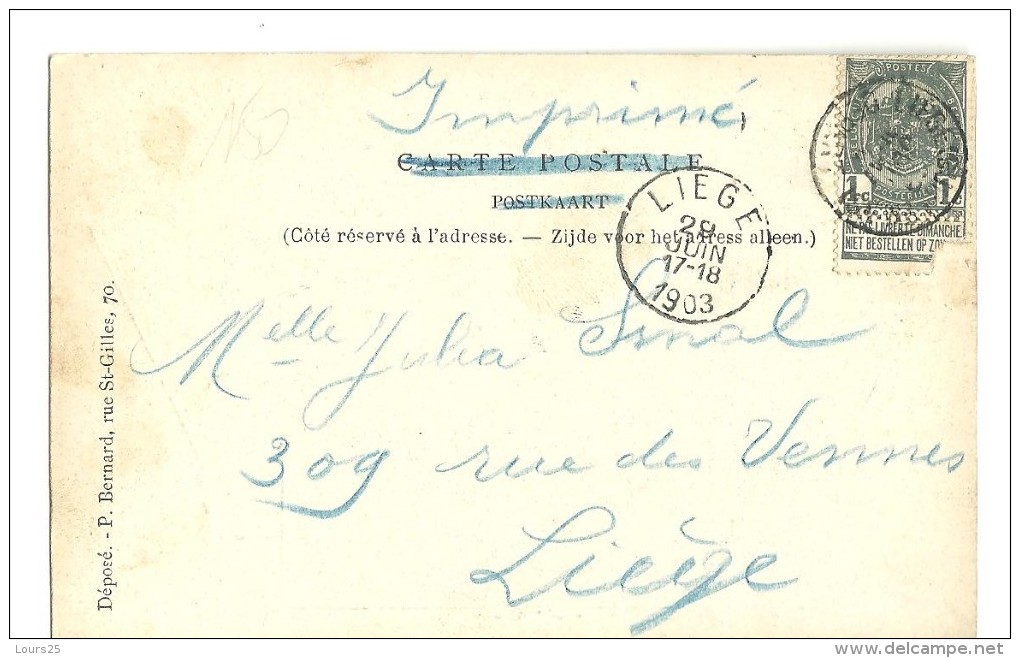 Imprimé
CARTE POSTALE
POSTKAART
(Côté réservé à l'adresse. — Zijde voor het adress alleen.)
POSTES
POSTERIJEN
1c 1c
NE PAS LIVRER LE DIMANCHE
NIET BESTELLEN OP ZON
LIEGE
29
JUIN
17-18
1903
Melle Julia Smal
309 rue des Vennes
Liège
Déposé. - P. Bernard, rue St-Gilles, 70.
Lours25
delcampe.net